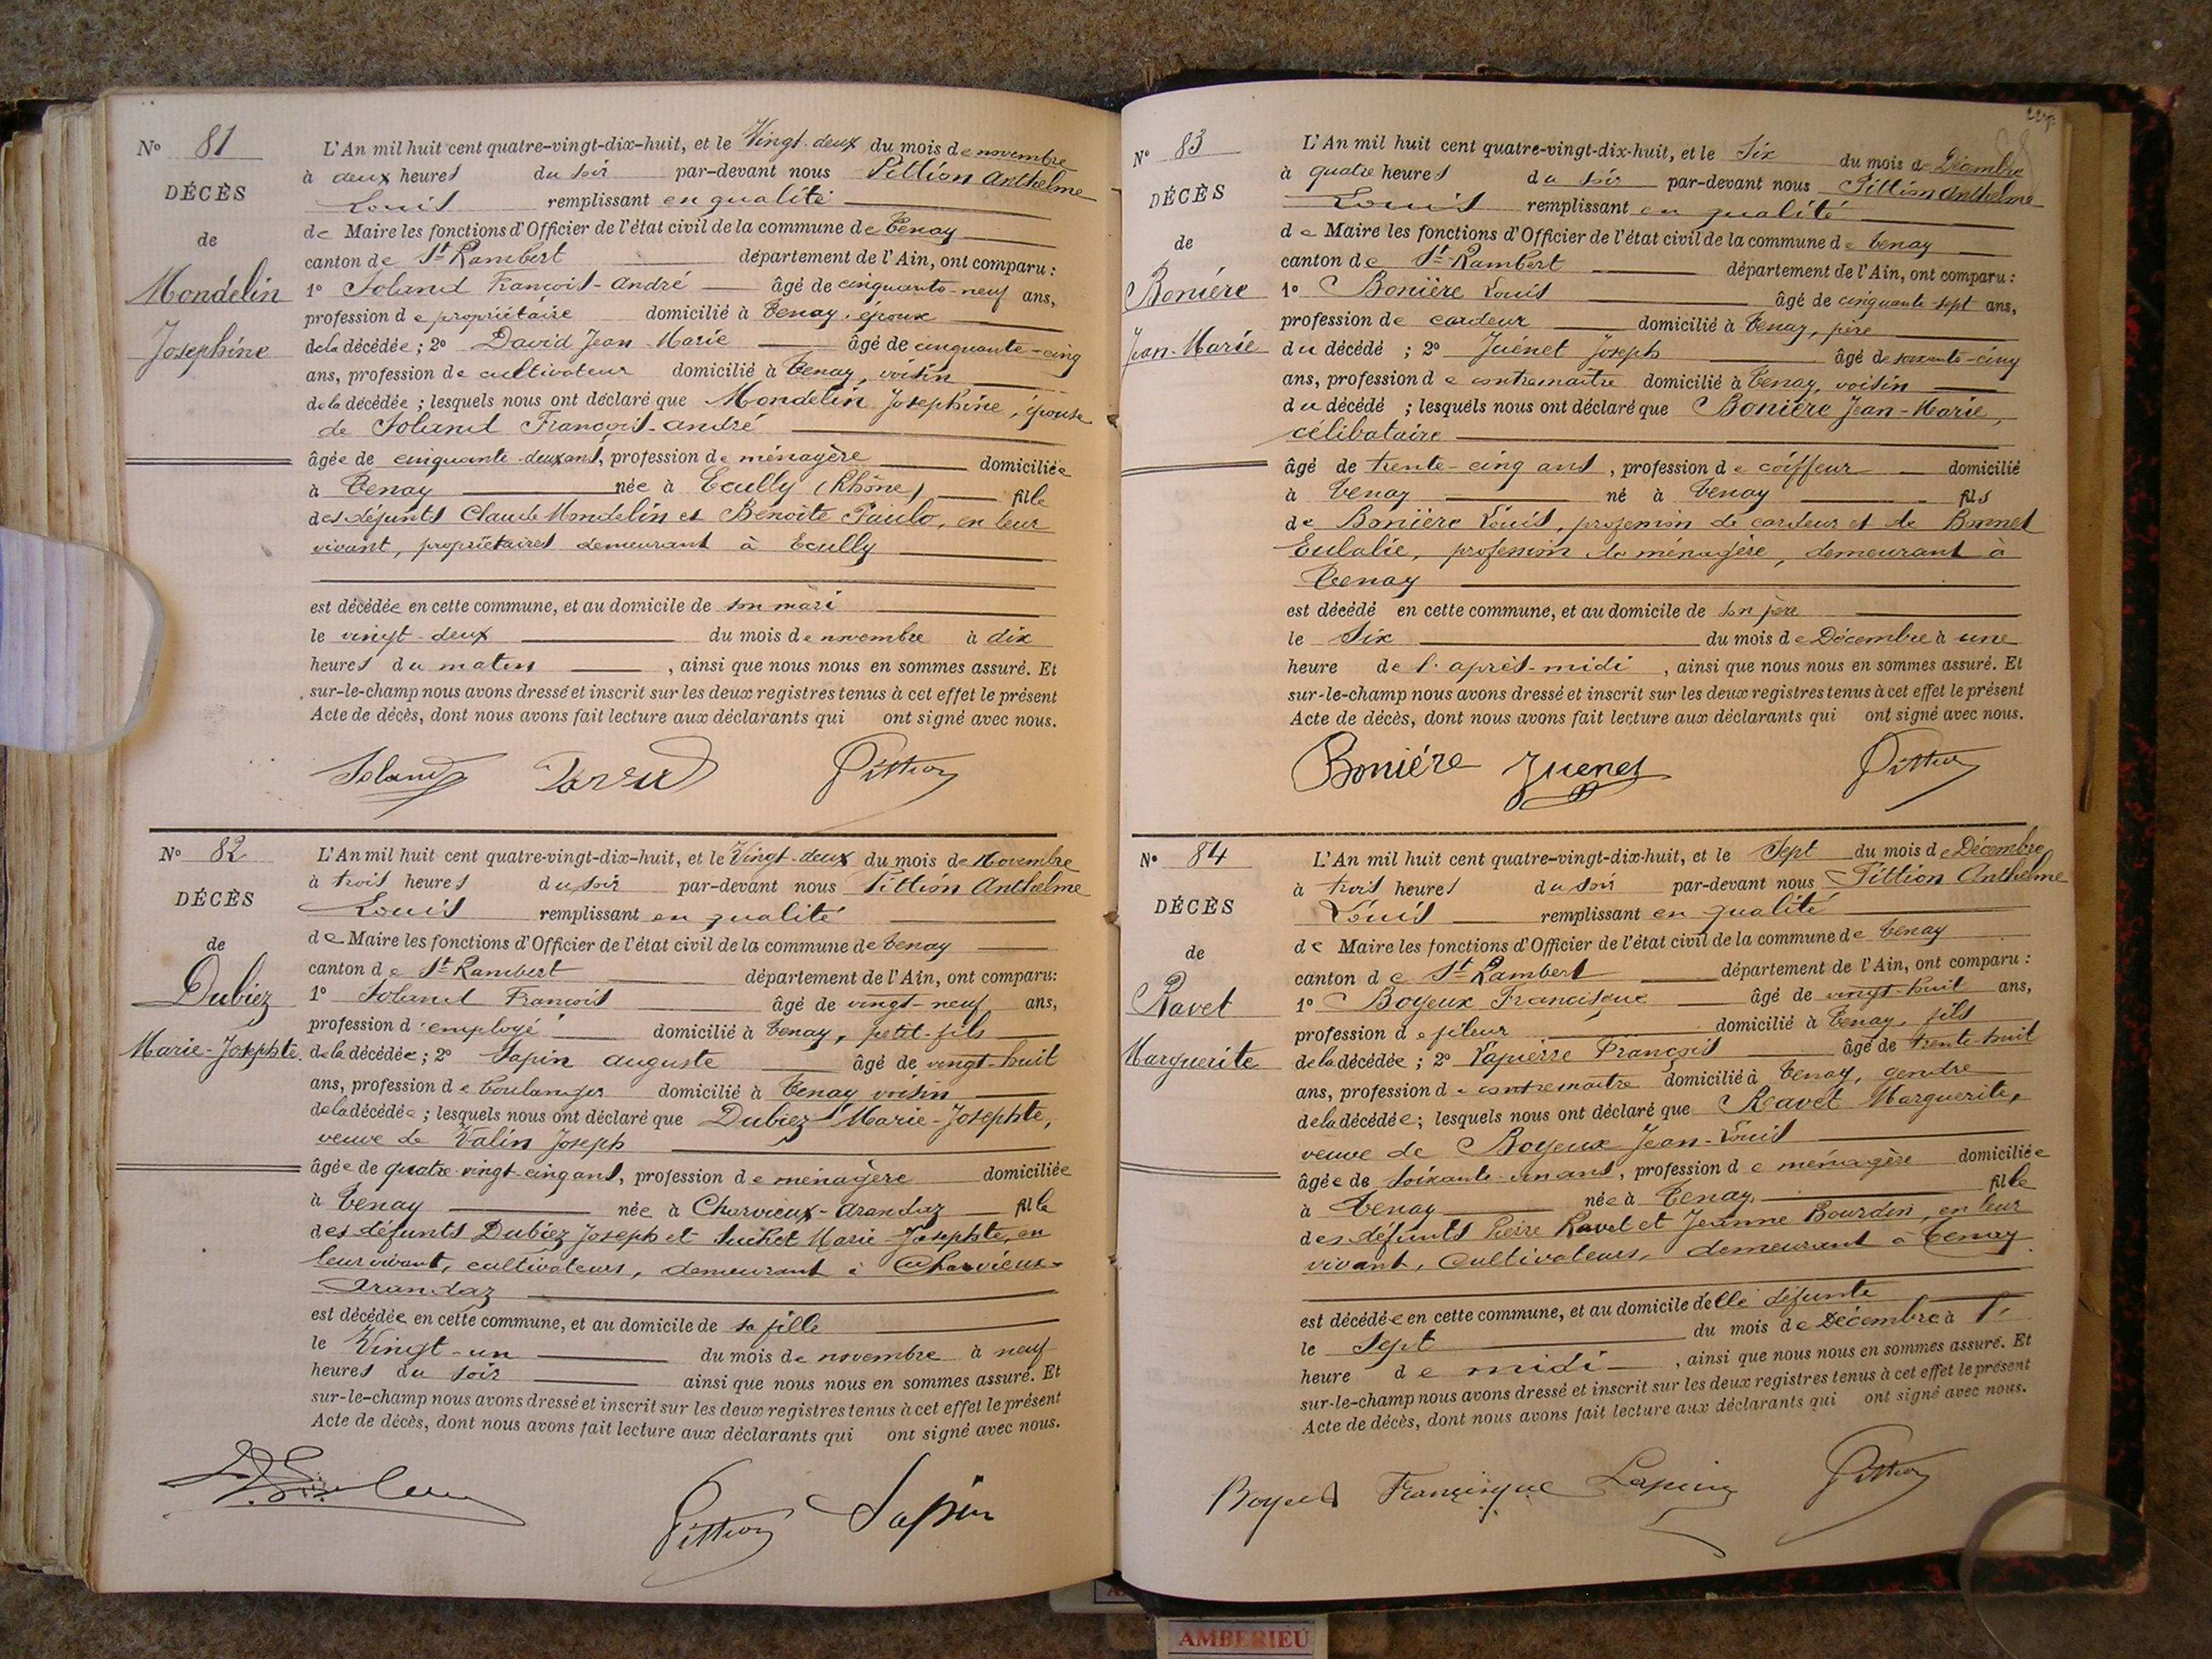 N° 81
DÉCÈS
de
Mondelin
Josephine
L'An mil huit cent quatre-vingt-dix-huit, et le Vingt-deux du mois de novembre
à deux heures du soir par-devant nous Pittion Anthelme
Louis remplissant en qualité
de Maire les fonctions d'Officier de l'état civil de la commune de Tenay
canton de St Rambert département de l'Ain, ont comparu :
1° Soland François-André âgé de cinquante-neuf ans,
profession de propriétaire domicilié à Tenay, époux
de la décédée ; 2° David Jean Marie âgé de cinquante-cinq
ans, profession de cultivateur domicilié à Tenay, voisin
de la décédée ; lesquels nous ont déclaré que Mondelin Josephine, épouse
de Soland François-André
âgée de cinquante-deux ans, profession de ménagère domiciliée
à Tenay née à Ecully (Rhône) fille
des défunts Claude Mondelin et Benoîte Paulo, en leur
vivant, propriétaires demeurant à Ecully
est décédée en cette commune, et au domicile de son mari
le vingt-deux du mois de novembre à dix
heures du matin , ainsi que nous nous en sommes assuré. Et
sur-le-champ nous avons dressé et inscrit sur les deux registres tenus à cet effet le présent
Acte de décès, dont nous avons fait lecture aux déclarants qui ont signé avec nous.
Soland David Pittion
N° 82
DÉCÈS
de
Dubiez
Marie-Josephte
L'An mil huit cent quatre-vingt-dix-huit, et le Vingt-deux du mois de Novembre
à trois heures du soir par-devant nous Pittion Anthelme
Louis remplissant en qualité
de Maire les fonctions d'Officier de l'état civil de la commune de Tenay
canton de St Rambert département de l'Ain, ont comparu:
1° Soland François âgé de vingt-neuf ans,
profession d'employé domicilié à Tenay, petit-fils
de la décédée ; 2° Sapin auguste âgé de vingt-huit
ans, profession de boulanger domicilié à Tenay voisin
de la décédée ; lesquels nous ont déclaré que Dubiez Marie-Josephte,
veuve de Valin Joseph
âgée de quatre-vingt-cinq ans, profession de ménagère domiciliée
à Tenay née à Charvieux-Arandaz fille
des défunts Dubiez Joseph et Suchet Marie-Josephte, en
leur vivant, cultivateurs, demeurant à Charvieux-
Arandaz
est décédée en cette commune, et au domicile de sa fille
le Vingt-un du mois de novembre à neuf
heures du soir ainsi que nous nous en sommes assuré. Et
sur-le-champ nous avons dressé et inscrit sur les deux registres tenus à cet effet le présent
Acte de décès, dont nous avons fait lecture aux déclarants qui ont signé avec nous.
Pittion Sapin
N° 83
DÉCÈS
de
Bonière
Jean-Marie
L'An mil huit cent quatre-vingt-dix-huit, et le Six du mois de Décembre
à quatre heures du soir par-devant nous Pittion Anthelme
Louis remplissant en qualité
de Maire les fonctions d'Officier de l'état civil de la commune de Tenay
canton de St-Rambert département de l'Ain, ont comparu :
1° Bonière Louis âgé de cinquante-sept ans,
profession de cardeur domicilié à Tenay, père
du décédé ; 2° Juénet Joseph âgé de soixante-cinq
ans, profession de contremaître domicilié à Tenay, voisin
du décédé ; lesquels nous ont déclaré que Bonière Jean-Marie,
célibataire
âgé de trente-cinq ans , profession de coiffeur domicilié
à Tenay né à Tenay fils
de Bonière Louis, profession de cardeur et de Bonnet
Eulalie, profession de ménagère, demeurant à
Tenay
est décédé en cette commune, et au domicile de son père
le Six du mois de Décembre à une
heure de l'après-midi , ainsi que nous nous en sommes assuré. Et
sur-le-champ nous avons dressé et inscrit sur les deux registres tenus à cet effet le présent
Acte de décès, dont nous avons fait lecture aux déclarants qui ont signé avec nous.
Boniére Juenet Pittion
N° 84
DÉCÈS
de
Ravet
Marguerite
L'An mil huit cent quatre-vingt-dix-huit, et le Sept du mois de Décembre
à trois heures du soir par-devant nous Pittion Anthelme
Louis remplissant en qualité
de Maire les fonctions d'Officier de l'état civil de la commune de Tenay
canton de St Rambert département de l'Ain, ont comparu :
1° Boyeux Francisque âgé de vingt-huit ans,
profession de fileur domicilié à Tenay, fils
de la décédée ; 2° Lapierre François âgé de trente-huit
ans, profession de contremaître domicilié à Tenay, gendre
de la décédée ; lesquels nous ont déclaré que Ravet Marguerite,
veuve de Boyeux Jean-Louis
âgée de soixante-un ans, profession de ménagère domiciliée
à Tenay née à Tenay fille
des défunts Pierre Ravet et Jeanne Bourdin, en leur
vivant, cultivateurs, demeurant à Tenay
est décédée en cette commune, et au domicile d'elle défunte
le Sept du mois de Décembre à 1
heure de midi , ainsi que nous nous en sommes assuré. Et
sur-le-champ nous avons dressé et inscrit sur les deux registres tenus à cet effet le présent
Acte de décès, dont nous avons fait lecture aux déclarants qui ont signé avec nous.
Boyeux Francisque Pittion
AMBERIEU